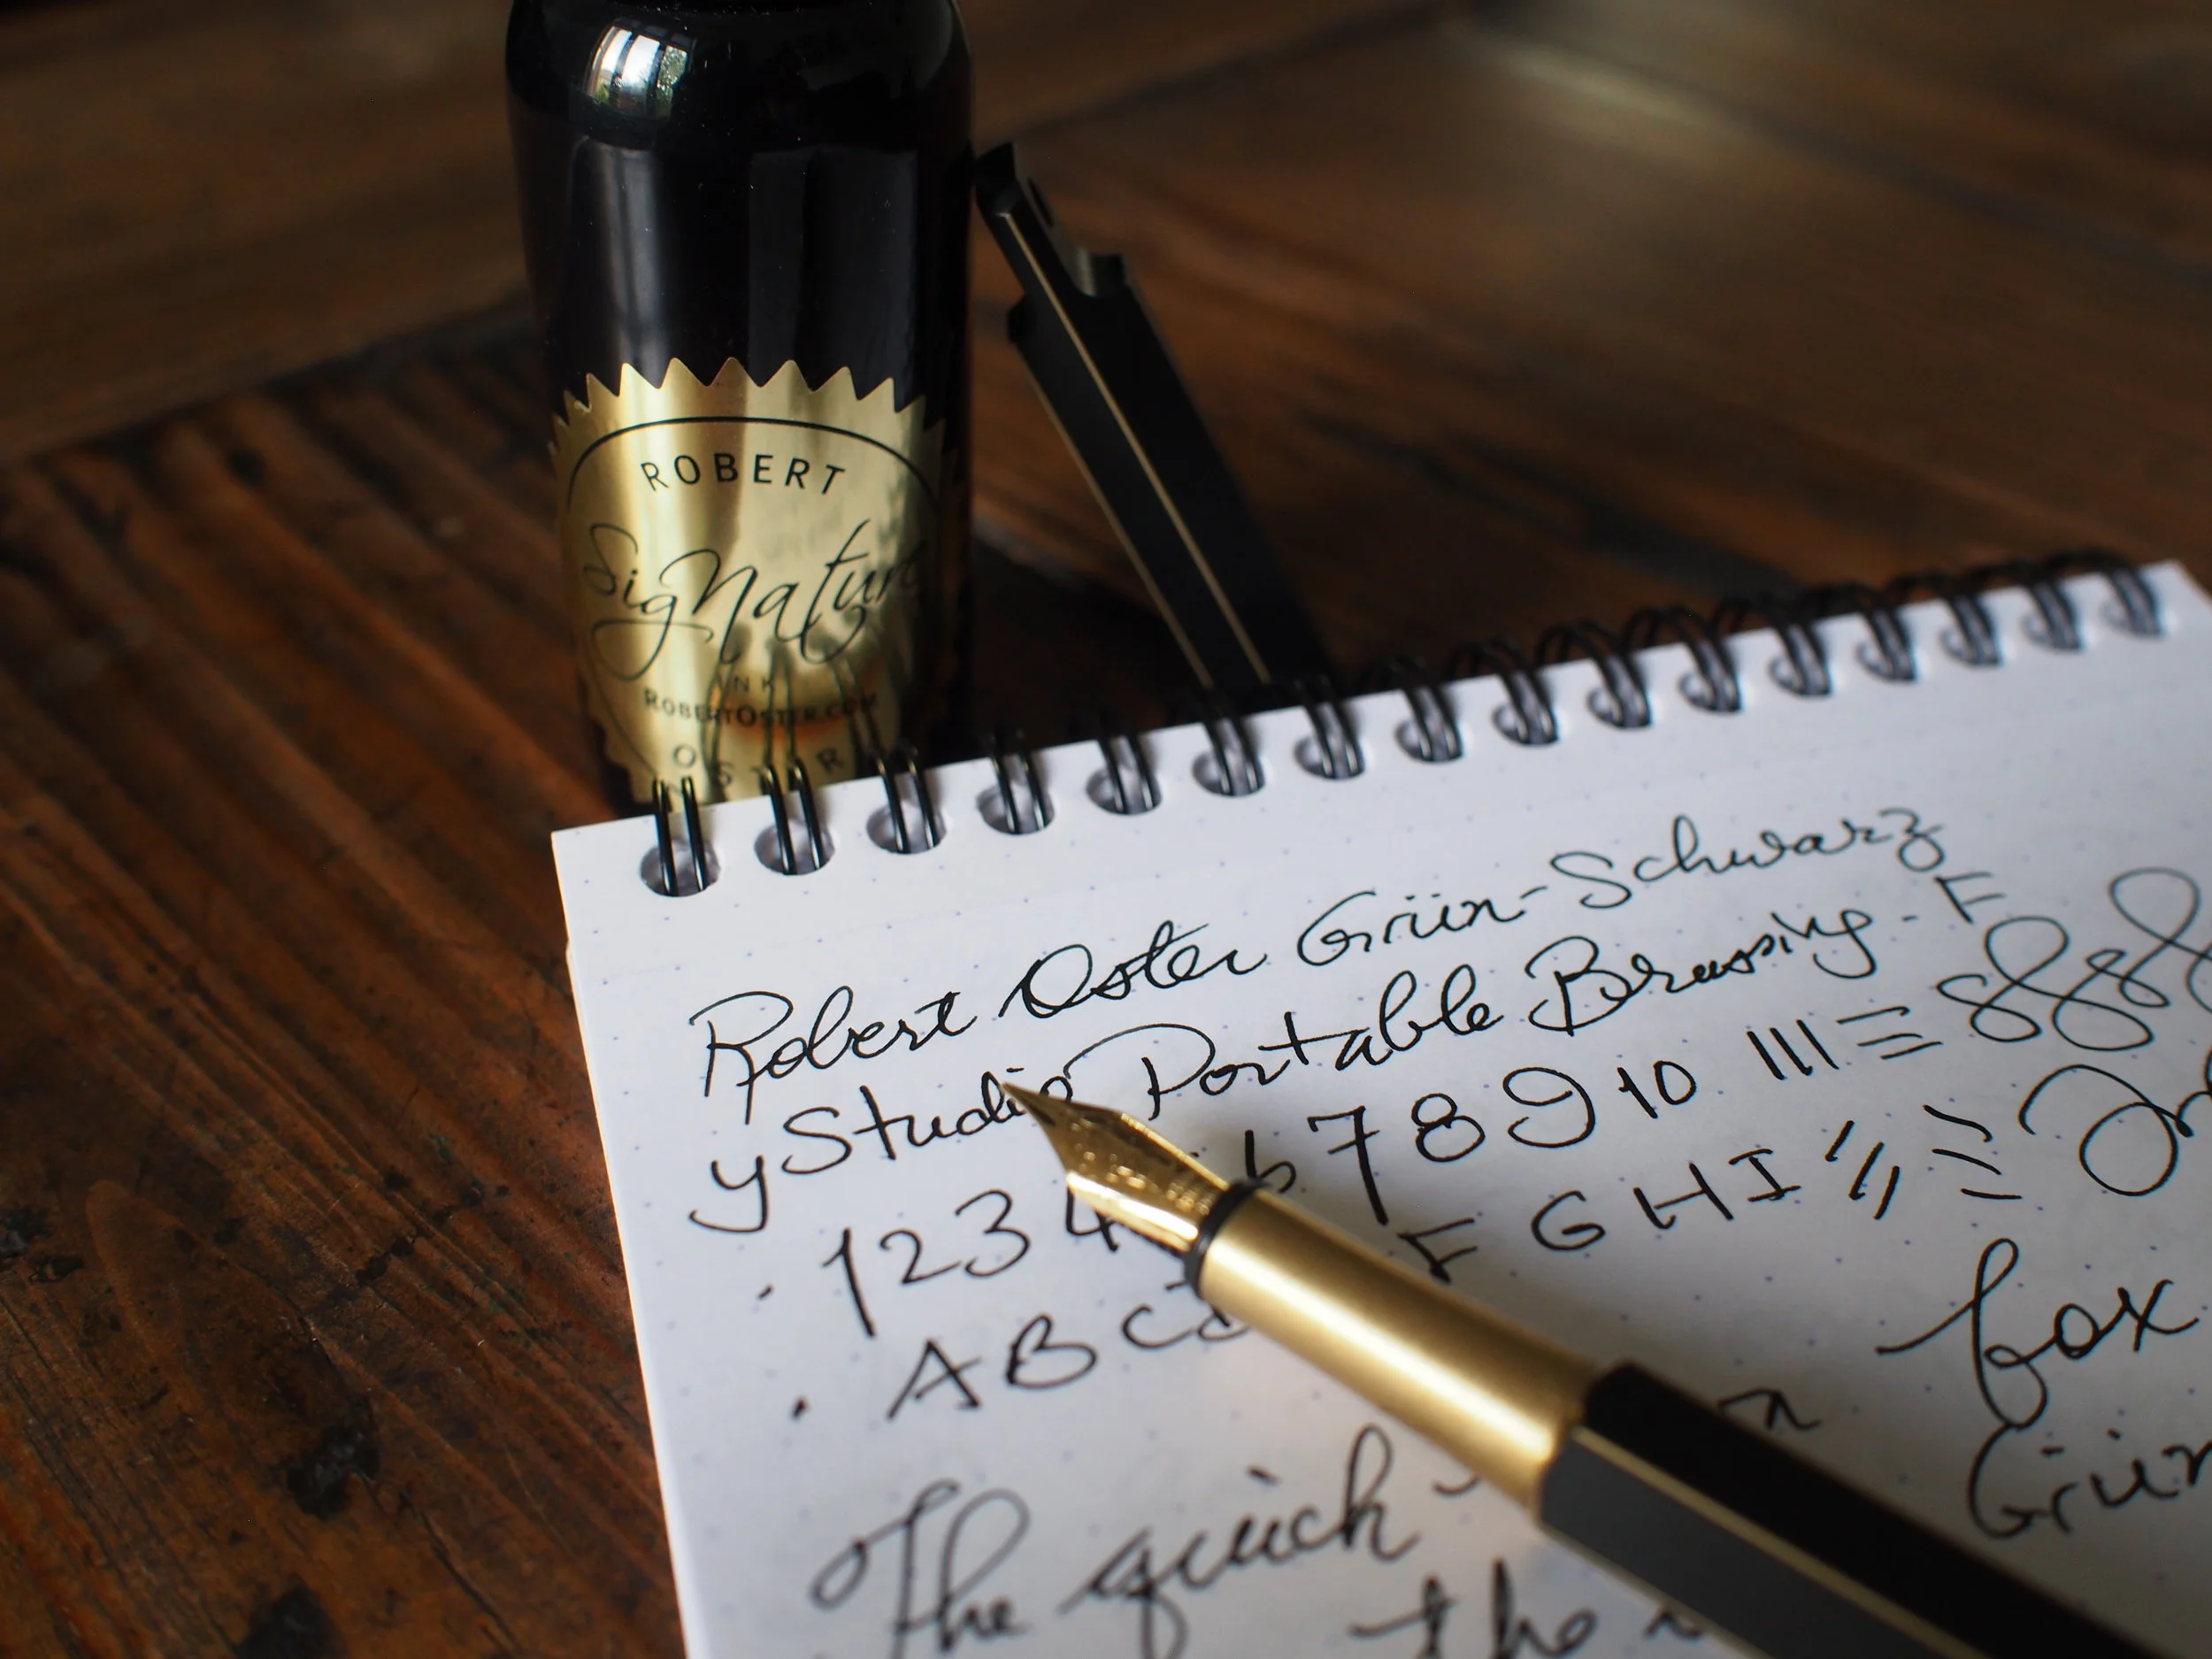 ROBERT
SigNature
INK
ROBERTOSTER.COM
OSTER
Robert Oster Grün-Schwarz
yStudio Portable Brassing - F
1 2 3 4 6 7 8 9 10
A B C D F G H I
The quick fox
the
Grün